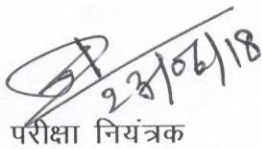 23/06/18
परीक्षा नियंत्रक